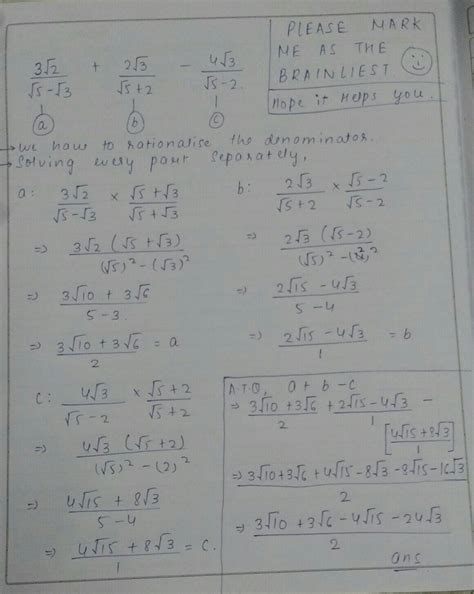 PLEASE MARK
ME AS THE
BRAINLIEST.
Hope it Helps you.
3√2/(√5-√3) + 2√3/(√5+2) - 4√3/(√5-2).
a b c
→ we have to rationalise the denominator.
→ Solving every part separately,
a: 3√2/(√5-√3) × (√5+√3)/(√5+√3)
⇒ 3√2(√5+√3)/((√5)²-(√3)²)
⇒ (3√10 + 3√6)/(5-3.)
⇒ (3√10+3√6)/2 = a
b: 2√3/(√5+2) × (√5-2)/(√5-2)
⇒ 2√3(√5-2)/((√5)²-(2)²)
⇒ (2√15-4√3)/(5-4)
⇒ (2√15-4√3)/1 = b
c: 4√3/(√5-2) × (√5+2)/(√5+2)
⇒ 4√3(√5+2)/((√5)²-(2)²)
⇒ (4√15 + 8√3)/(5-4)
⇒ (4√15+8√3)/1 = c.
A.T.Q, a + b - c
⇒ (3√10+3√6)/2 + (2√15-4√3)/1 -
[(4√15+8√3)/1]
⇒ (3√10+3√6+4√15-8√3-8√15-16√3)/2
⇒ (3√10+3√6-4√15-24√3)/2
ans